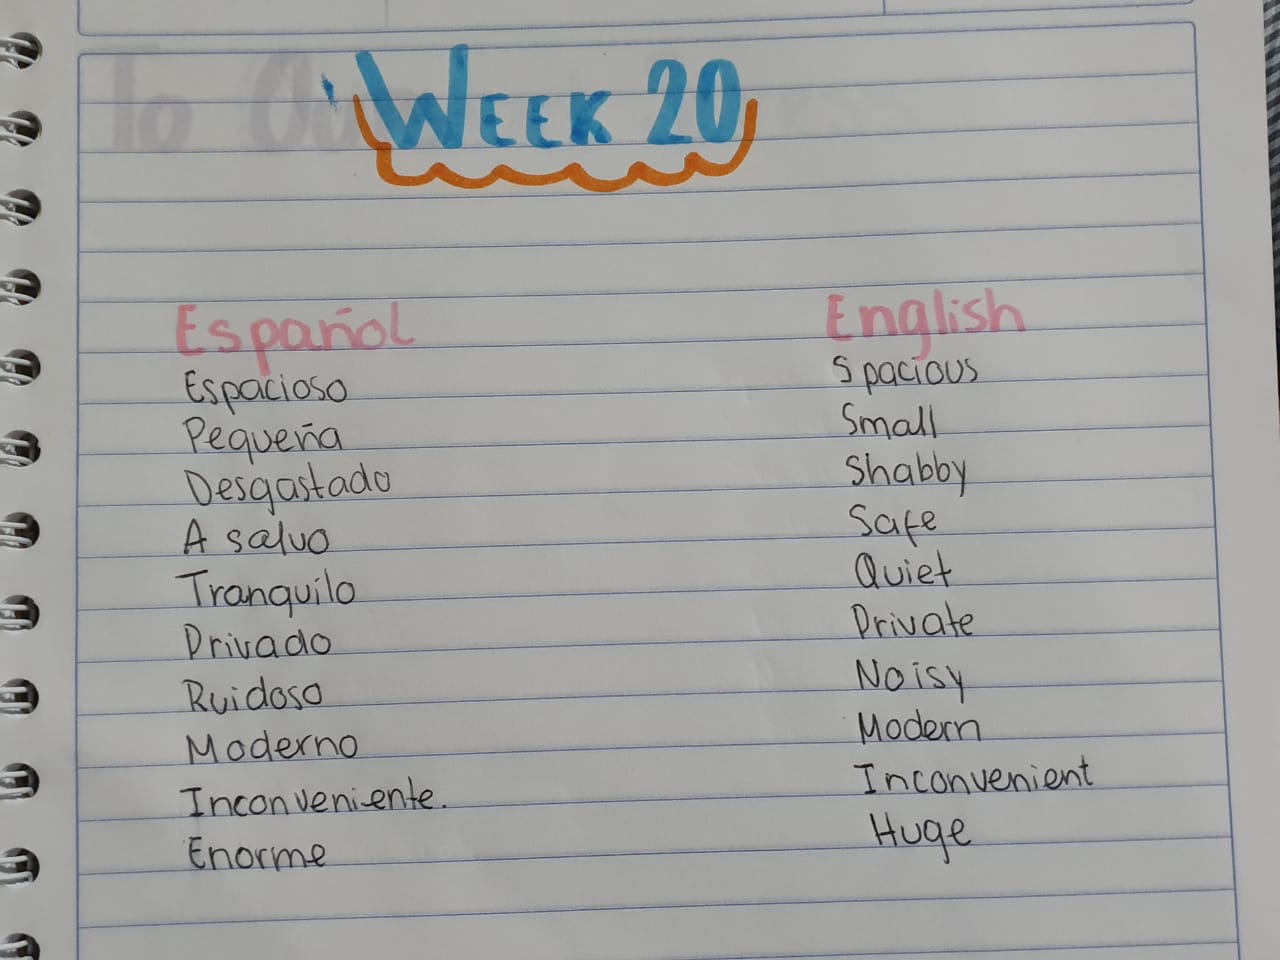 WEEK 20
Español English
Espacioso Spacious
Pequeña Small
Desgastado Shabby
A salvo Safe
Tranquilo Quiet
Privado Private
Ruidoso Noisy
Moderno Modern
Inconveniente. Inconvenient
Enorme Huge